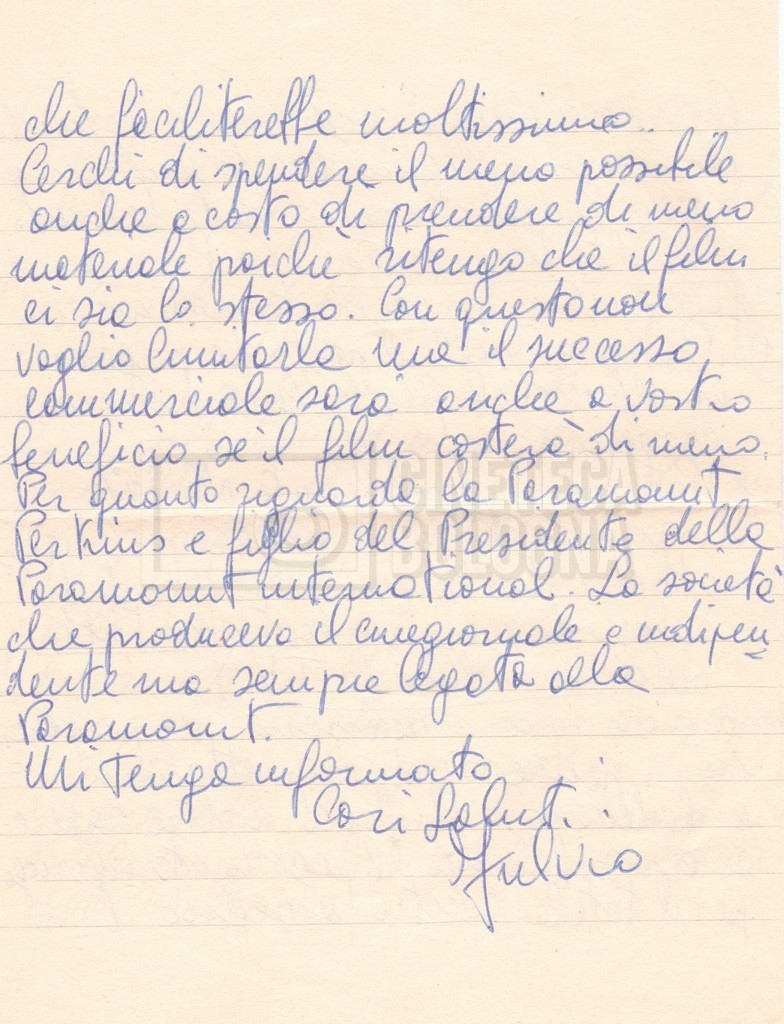 che faciliterebbe moltissimo..
Cerchi di spendere il meno possibile
anche a costo di prendere di meno
materiale poichè ritengo che il film
ci sia lo stesso. Con questo non
voglio limitarla ma il successo
commerciale sarà anche a vostro
beneficio se il film costerà di meno.
Per quanto riguarda la Paramount
Perkins e figlio del Presidente della
Paramount international. La società
che produceva il cinegiornale e indipen
dente ma sempre legata alla
Paramount.
Mi tenga informato
Cari Saluti
Fulvio
CINETECA
BOLOGNA